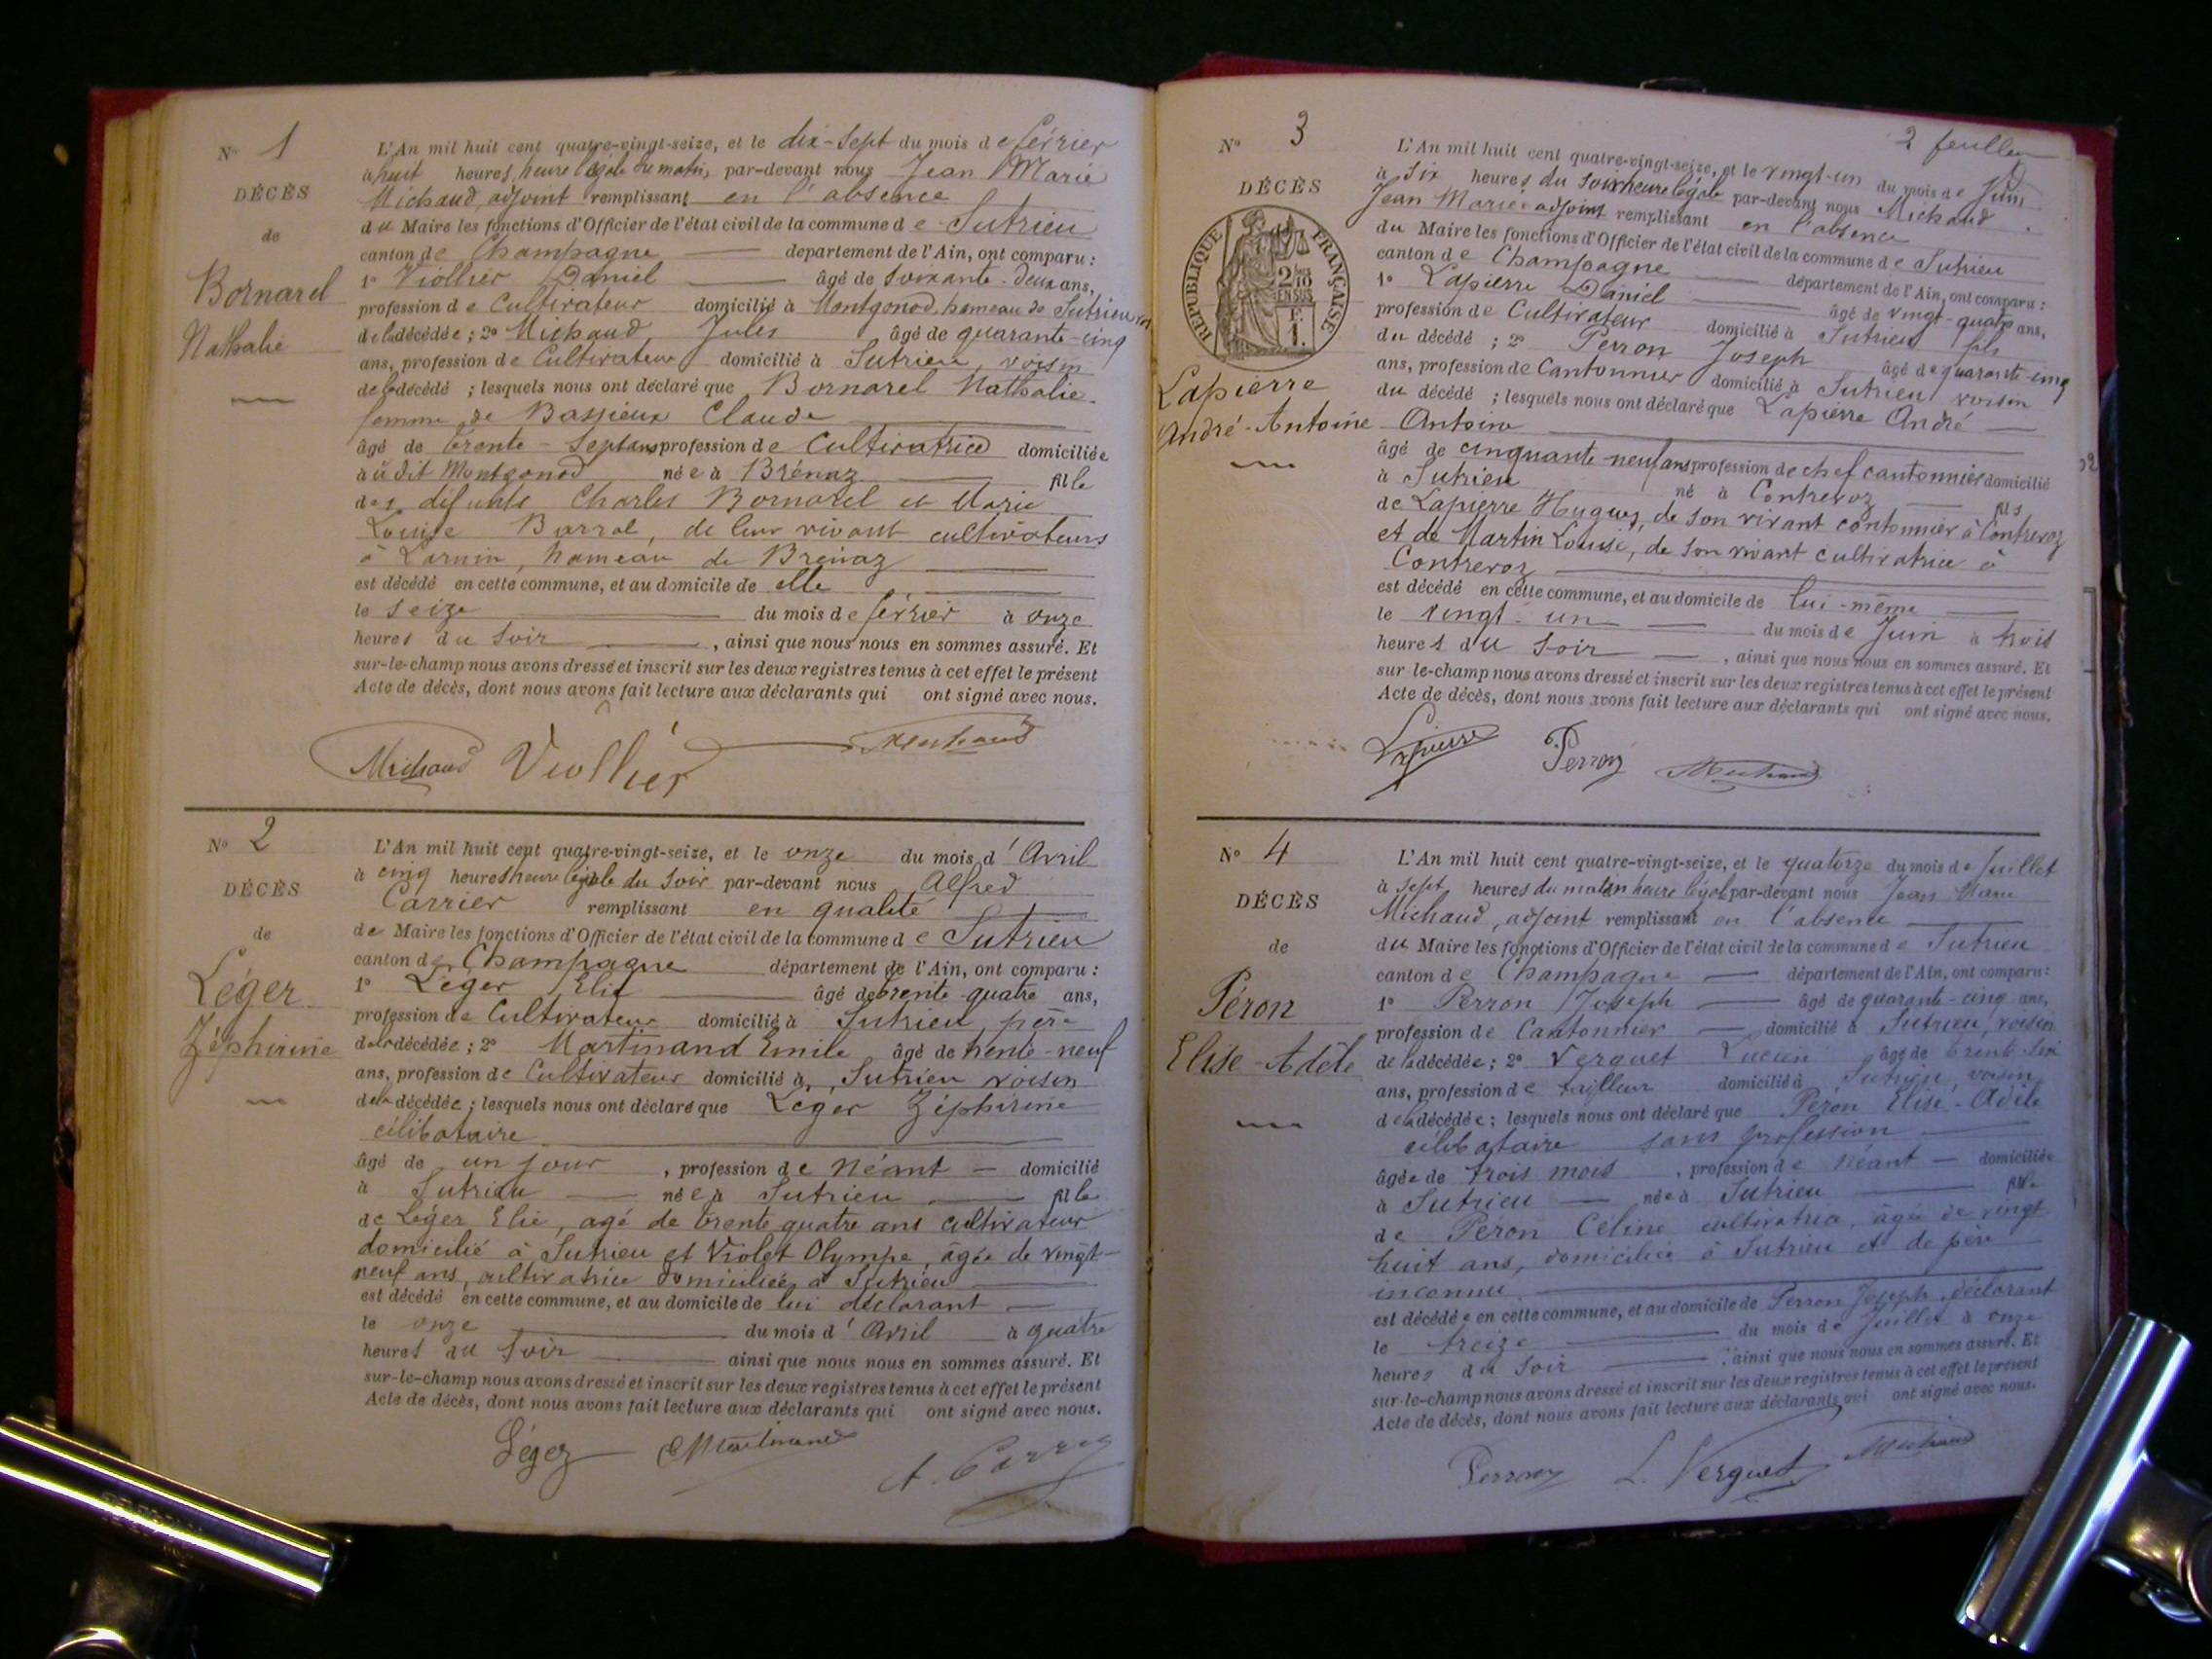 N° 1
DÉCÈS
de
Bornarel
Nathalie
L'An mil huit cent quatre-vingt-seize, et le dix-sept du mois de février
à huit heures, heure légale du matin, par-devant nous Jean Marie
Michaud, adjoint remplissant en l'absence
du Maire les fonctions d'Officier de l'état civil de la commune de Sutrieu
canton de Champagne département de l'Ain, ont comparu :
1° Viollier Daniel âgé de soixante-deux ans,
profession de Cultivateur domicilié à Montgonod, hameau de Sutrieu
de la décédée ; 2° Michaud Jules âgé de quarante-cinq
ans, profession de Cultivateur domicilié à Sutrieu, voisin
de la décédé ; lesquels nous ont déclaré que Bornarel Nathalie
femme de Bassieux Claude
âgé de trente-sept ans profession de Cultivatrice domiciliée
à udit Montgonod née à Brénaz fille
des défunts Charles Bornarel et Marie
Louise Barral, de leur vivant cultivateurs
à Lornin, hameau de Brénaz
est décédé en cette commune, et au domicile de elle
le seize du mois de février à onze
heures du soir , ainsi que nous nous en sommes assuré. Et
sur-le-champ nous avons dressé et inscrit sur les deux registres tenus à cet effet le présent
Acte de décès, dont nous avons fait lecture aux déclarants qui ont signé avec nous.
Michaud Viollier Michaud
N° 2
DÉCÈS
de
Léger
Zéphirine
L'An mil huit cent quatre-vingt-seize, et le onze du mois d'Avril
à cinq heures heure légale du soir par-devant nous Alfred
Carrier remplissant en qualité
de Maire les fonctions d'Officier de l'état civil de la commune de Sutrieu
canton de Champagne département de l'Ain, ont comparu :
1° Léger Elie âgé de trente-quatre ans,
profession de Cultivateur domicilié à Sutrieu, père
de la décédée ; 2° Martinand Emile âgé de trente-neuf
ans, profession de Cultivateur domicilié à Sutrieu voisin
de la décédée ; lesquels nous ont déclaré que Léger Zéphirine
célibataire
âgé de un jour , profession de Néant domicilié
à Sutrieu née à Sutrieu fille
de Léger Elie, agé de trente quatre ans cultivateur
domicilié à Sutrieu et Violet Olympe, âgée de vingt-
neuf ans, cultivatrice domiciliée à Sutrieu
est décédé en cette commune, et au domicile de lui déclarant
le onze du mois d'Avril à quatre
heures du soir ainsi que nous nous en sommes assuré. Et
sur-le-champ nous avons dressé et inscrit sur les deux registres tenus à cet effet le présent
Acte de décès, dont nous avons fait lecture aux déclarants qui ont signé avec nous.
Léger EMartinand A. Carrier
2 feuillet
N° 3
DÉCÈS
REPUBLIQUE FRANÇAISE
2/10 EN SUS
F. 1.
Lapierre
André-Antoine
L'An mil huit cent quatre-vingt-seize, et le vingt-un du mois de Juin
à six heures du soir heure légale par-devant nous Michaud
Jean Marie adjoint remplissant en l'absence
du Maire les fonctions d'Officier de l'état civil de la commune de Sutrieu
canton de Champagne département de l'Ain, ont comparu :
1° Lapierre Daniel âgé de vingt-quatre ans,
profession de Cultivateur domicilié à Sutrieu fils
du décédé ; 2° Perron Joseph âgé de quarante-cinq
ans, profession de Cantonnier domicilié à Sutrieu voisin
du décédé ; lesquels nous ont déclaré que Lapierre André
Antoine
âgé de cinquante-neuf ans profession de chef cantonnier domicilié
à Sutrieu né à Contrevoz fils
de Lapierre Hugues, de son vivant cantonnier à Contrevoz
et de Martin Louise, de son vivant cultivatrice à
Contrevoz
est décédé en cette commune, et au domicile de lui-même
le vingt-un du mois de Juin à trois
heures du soir , ainsi que nous nous en sommes assuré. Et
sur-le-champ nous avons dressé et inscrit sur les deux registres tenus à cet effet le présent
Acte de décès, dont nous avons fait lecture aux déclarants qui ont signé avec nous.
Lapierre Perron Michaud
N° 4
DÉCÈS
de
Péron
Elise-Adèle
L'An mil huit cent quatre-vingt-seize, et le quatorze du mois de Juillet
à sept heures du matin heure légale par-devant nous Jean Marie
Michaud, adjoint remplissant en l'absence
du Maire les fonctions d'Officier de l'état civil de la commune de Sutrieu
canton de Champagne département de l'Ain, ont comparu :
1° Perron Joseph âgé de quarante-cinq ans,
profession de Cantonnier domicilié à Sutrieu, voisin
de la décédée ; 2° Verguet Lucien âgé de trente-
ans, profession de tailleur domicilié à Sutrieu, voisin
de la décédée ; lesquels nous ont déclaré que Péron Elise-Adèle
célibataire sans profession
âgée de trois mois , profession de Néant domiciliée
à Sutrieu née à Sutrieu fille
de Péron Céline cultivatrice, âgée de vingt
huit ans, domiciliée à Sutrieu et de père
inconnu.
est décédée en cette commune, et au domicile de Perron Joseph, déclarant
le treize du mois de Juillet à onze
heures du soir , ainsi que nous nous en sommes assuré. Et
sur-le-champ nous avons dressé et inscrit sur les deux registres tenus à cet effet le présent
Acte de décès, dont nous avons fait lecture aux déclarants qui ont signé avec nous.
Perron L. Verguet Michaud